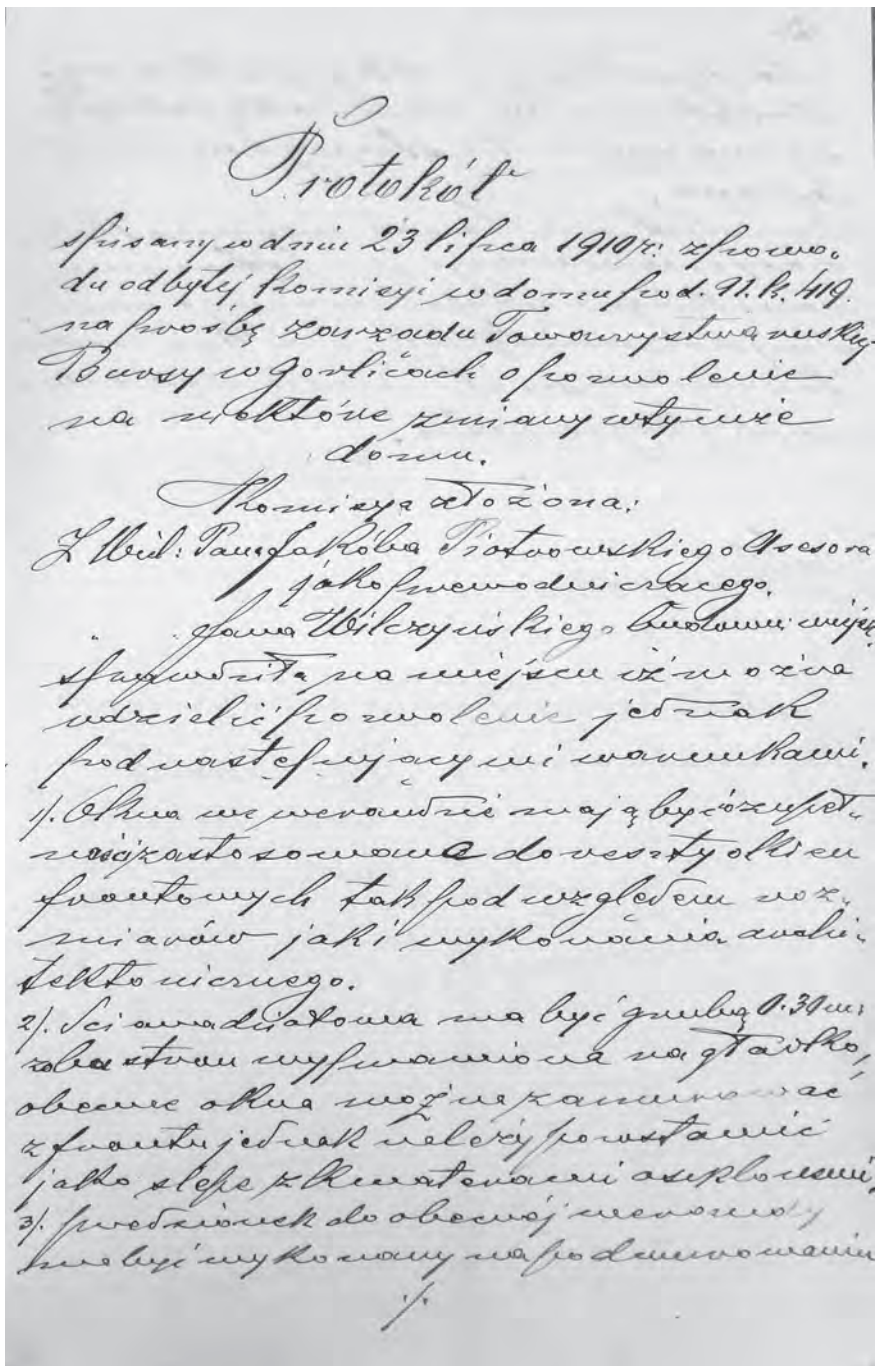 Protokół
spisany w dniu 23 lipca 1910 r: z powo-
du odbytej komisyi w domu pod. N. k. 419.
na prośbę zarządu Towarzystwa ruskiej
Bursy w Gorlicach o pozwolenie
na niektóre zmiany w tymże
domu.
Komisya złożona:
Z Wiel: Pana Jakóba Piotrowskiego Asesora
jako przewodniczącego.
" Jana Wilczyńskiego budown: miejsk.
sprawdziła na miejscu iż można
udzielić pozwolenie jednak
pod następującymi warunkami.
1). Okna we werandzie mają być
zastosowane do reszty okien
frontowych tak pod względem roz-
miarów jak i wykonania archi-
tektonicznego.
2). Ściana działowa ma być grubą 0.30 m:
z oba stron wyprawiona na gładko,
obecne okna można zamurować
z frontu jednak należy pozostawić
jako ślepe z kwaterami oszklonemi,
3). przedsionek do obecnej werandy
ma być wykonany na podmurowaniu
./.